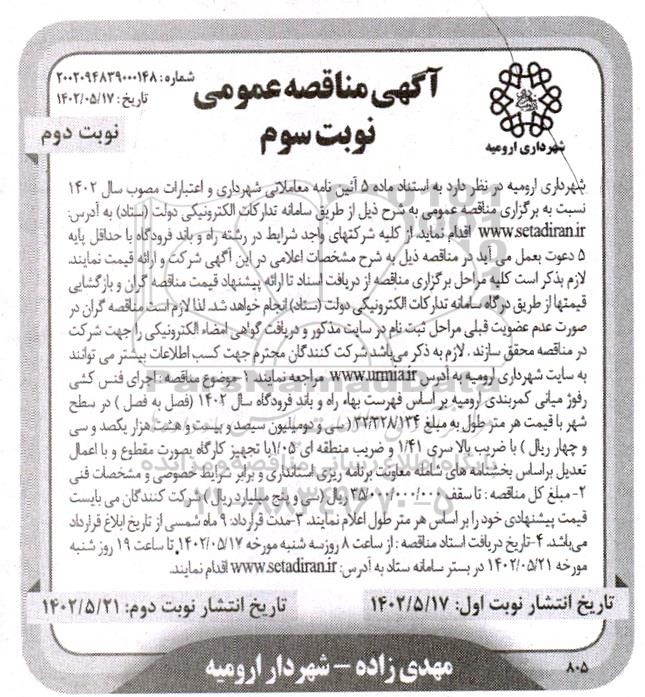 شهرداری ارومیه
آگهی مناقصه عمومی
نوبت سوم
شماره: ۲۰۰۲۰۹۴۸۳۹۰۰۰۱۴۸
تاریخ: ۱۴۰۲/۰۵/۱۷
نوبت دوم
شهرداری ارومیه در نظر دارد به استناد ماده ۵ آئین نامه معاملاتی شهرداری و اعتبارات مصوب سال ۱۴۰۲
نسبت به برگزاری مناقصه عمومی به شرح ذیل از طریق سامانه تدارکات الکترونیکی دولت (ستاد) به آدرس:
www.setadiran.ir اقدام نماید. از کلیه شرکتهای واجد شرایط در رشته راه و باند فرودگاه با حداقل پایه
۵ دعوت بعمل می آید در مناقصه ذیل به شرح مشخصات اعلامی در این آگهی شرکت و ارائه قیمت نمایند.
لازم بذکر است کلیه مراحل برگزاری مناقصه از دریافت اسناد تا ارائه پیشنهاد قیمت مناقصه گران و بازگشایی
قیمتها از طریق درگاه سامانه تدارکات الکترونیکی دولت (ستاد) انجام خواهد شد. لذا لازم است مناقصه گران در
صورت عدم عضویت قبلی مراحل ثبت نام در سایت مذکور و دریافت گواهی امضاء الکترونیکی را جهت شرکت
در مناقصه محقق سازند . لازم به ذکر می باشد شرکت کنندگان محترم جهت کسب اطلاعات بیشتر می توانند
به سایت شهرداری ارومیه به آدرس www.urmia.ir مراجعه نمایند. ۱-موضوع مناقصه : اجرای فنس کشی
رفوژ میانی کمربندی ارومیه بر اساس فهرست بهاء راه و باند فرودگاه سال ۱۴۰۲ (فصل به فصل ) در سطح
شهر با قیمت هر متر طول به مبلغ ۳۲/۳۲۸/۱۳۴ (سی و دومیلیون سیصد و بیست و هشت هزار یکصد و سی
و چهار ریال ) با ضریب بالا سری ۱/۴۱ و ضریب منطقه ای ۱/۰۵ با تجهیز کارگاه بصورت مقطوع و با اعمال
تعدیل براساس بخشنامه های شامله معاونت برنامه ریزی استانداری و برابر شرایط خصوصی و مشخصات فنی
۲- مبلغ کل مناقصه : تا سقف ۳۵/۰۰۰/۰۰۰/۰۰۰ ریال (سی و پنج میلیارد ریال ) شرکت کنندگان می بایست
قیمت پیشنهادی خود را بر اساس هر متر طول اعلام نمایند. ۳-مدت قرارداد: ۹ ماه شمسی از تاریخ ابلاغ قرارداد
می باشد. ۴-تاریخ دریافت اسناد مناقصه : از ساعت ۸ روز سه شنبه مورخه ۱۴۰۲/۰۵/۱۷ تا ساعت ۱۹ روز شنبه
مورخه ۱۴۰۲/۰۵/۲۱ در بستر سامانه ستاد به آدرس: www.setadiran.ir اقدام نمایند.
تاریخ انتشار نوبت اول: ۱۴۰۲/۵/۱۷
تاریخ انتشار نوبت دوم: ۱۴۰۲/۵/۲۱
مهدی زاده – شهردار ارومیه
۸۰۵